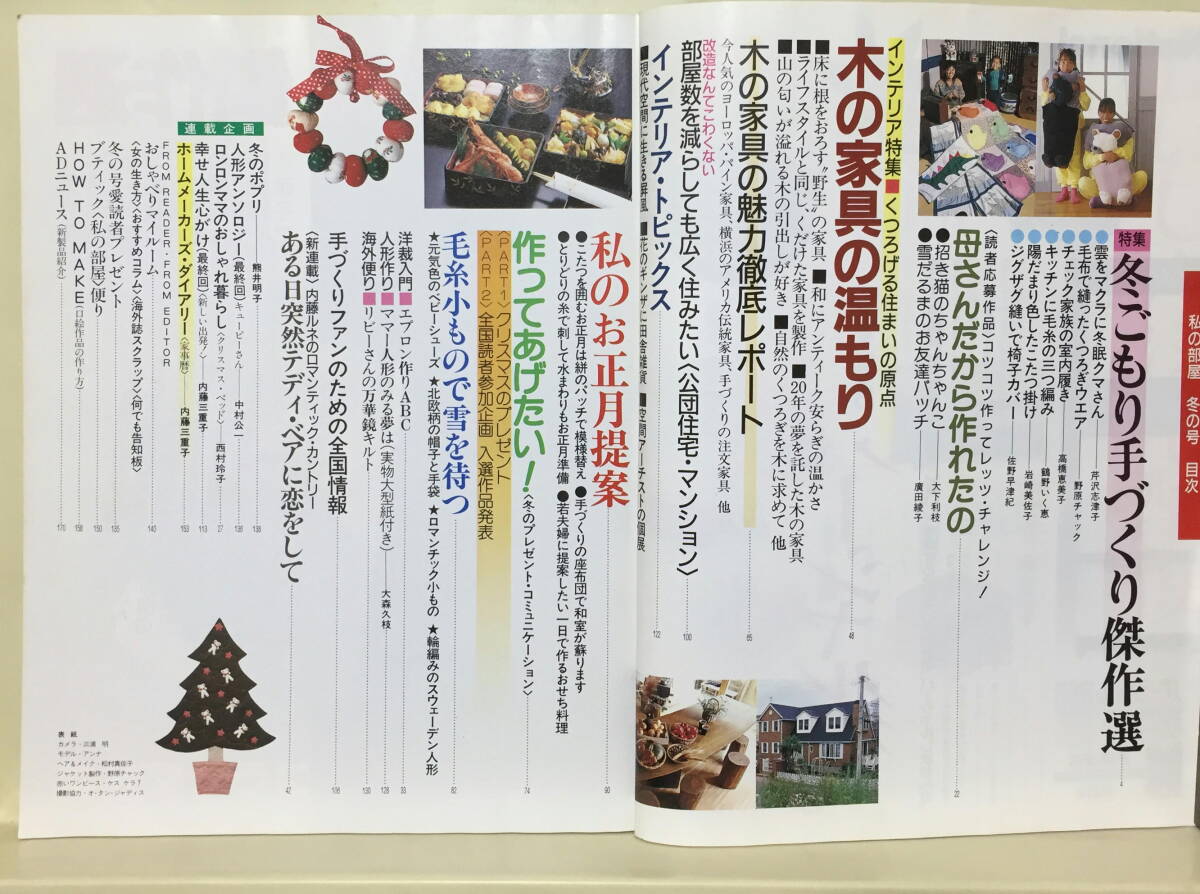 私の部屋 冬の号 目次
特集
冬ごもり手づくり傑作選 4
●雲をマクラに冬眠クマさん 芹沢志津子
●毛布で縫ったくつろぎウエア 野原チャック
●チェック家族の室内履き 高橋恵美子
●キッチンに毛糸の三つ編み 鶴野いく恵
●陽だまり色したこたつ掛け 岩崎美佐子
●ジグザグ縫いで椅子カバー 佐野早津紀
〈読者応募作品〉コツコツ作ってレッツ・チャレンジ!
母さんだから作れたの 22
●招き猫のちゃんちゃんこ 大下利枝
●雪だるまのお友達バッチ 廣田綾子
インテリア特集■くつろげる住まいの原点
木の家具の温もり 48
■床に根をおろす"野生"の家具 ■和にアンティーク安らぎの温かさ
■ライフスタイルと同じ、くだけた家具を製作 ■20年の夢を託した木の家具
■山の匂いが溢れる木の引出しが好き ■自然のくつろぎを木に求めて 他
木の家具の魅力徹底レポート 65
今人気のヨーロッパ・パイン家具、横浜のアメリカ伝統家具、手づくりの注文家具 他
改造なんてこわくない
部屋数を減らしても広く住みたい〈公団住宅・マンション〉 100
インテリア・トピックス 122
■現代空間に生きる屏風 ■花のギンザに田舎雑貨 ■空間アーチストの個展
私のお正月提案 90
●こたつを囲むお正月は絣のパッチで模様替え ●手づくりの座布団で和室が蘇ります
●とりどりの糸で刺して水まわりもお正月準備 ●若夫婦に提案したい一日で作るおせち料理
作ってあげたい!〈冬のプレゼント・コミュニケーション〉 74
〈PART1〉クリスマスのプレゼント
〈PART2〉全国読者参加企画 入選作品発表
毛糸小もので雪を待つ 82
★元気色のベビーシューズ ★北欧柄の帽子と手袋 ★ロマンチック小もの ★輪編みのスウェーデン人形
洋裁入門■エプロン作りABC 33
人形作り■ママー人形のみる夢は(実物大型紙付き) 大森久枝 128
海外便り■リビーさんの万華鏡キルト 130
手づくりファンのための全国情報 108
〈新連載〉内藤ルネのロマンティック・カントリー
ある日突然テディ・ベアに恋をして 42
連載企画
冬のポプリ 熊井明子 138
人形アンソロジー〈最終回〉キューピーさん 中村公一 136
ロンロンママのおしゃれ暮らし〈クリスマス・ベッド〉 西村玲子 27
幸せ人生心がけ〈最終回〉〈新しい出発!〉 内藤三重子 113
ホームメーカーズ・ダイアリー〈家事暦〉 内藤三重子 153
FROM READER・FROM EDITOR
おしゃべりマイルーム 140
〈女の生き方〉〈おすすめコラム〉〈海外誌スクラップ〉〈何でも告知板〉
冬の号愛読者プレゼント 135
ブティック〈私の部屋〉便り 150
HOW TO MAKE〈口絵作品の作り方〉 158
ADニュース〈新製品紹介〉 170
表紙
カメラ・三浦 明
モデル・アンナ
ヘア&メイク・松村真佐子
ジャケット製作・野原チャック
赤いワンピース・ケス ケラ?
撮影協力・オ・タン・ジャディス